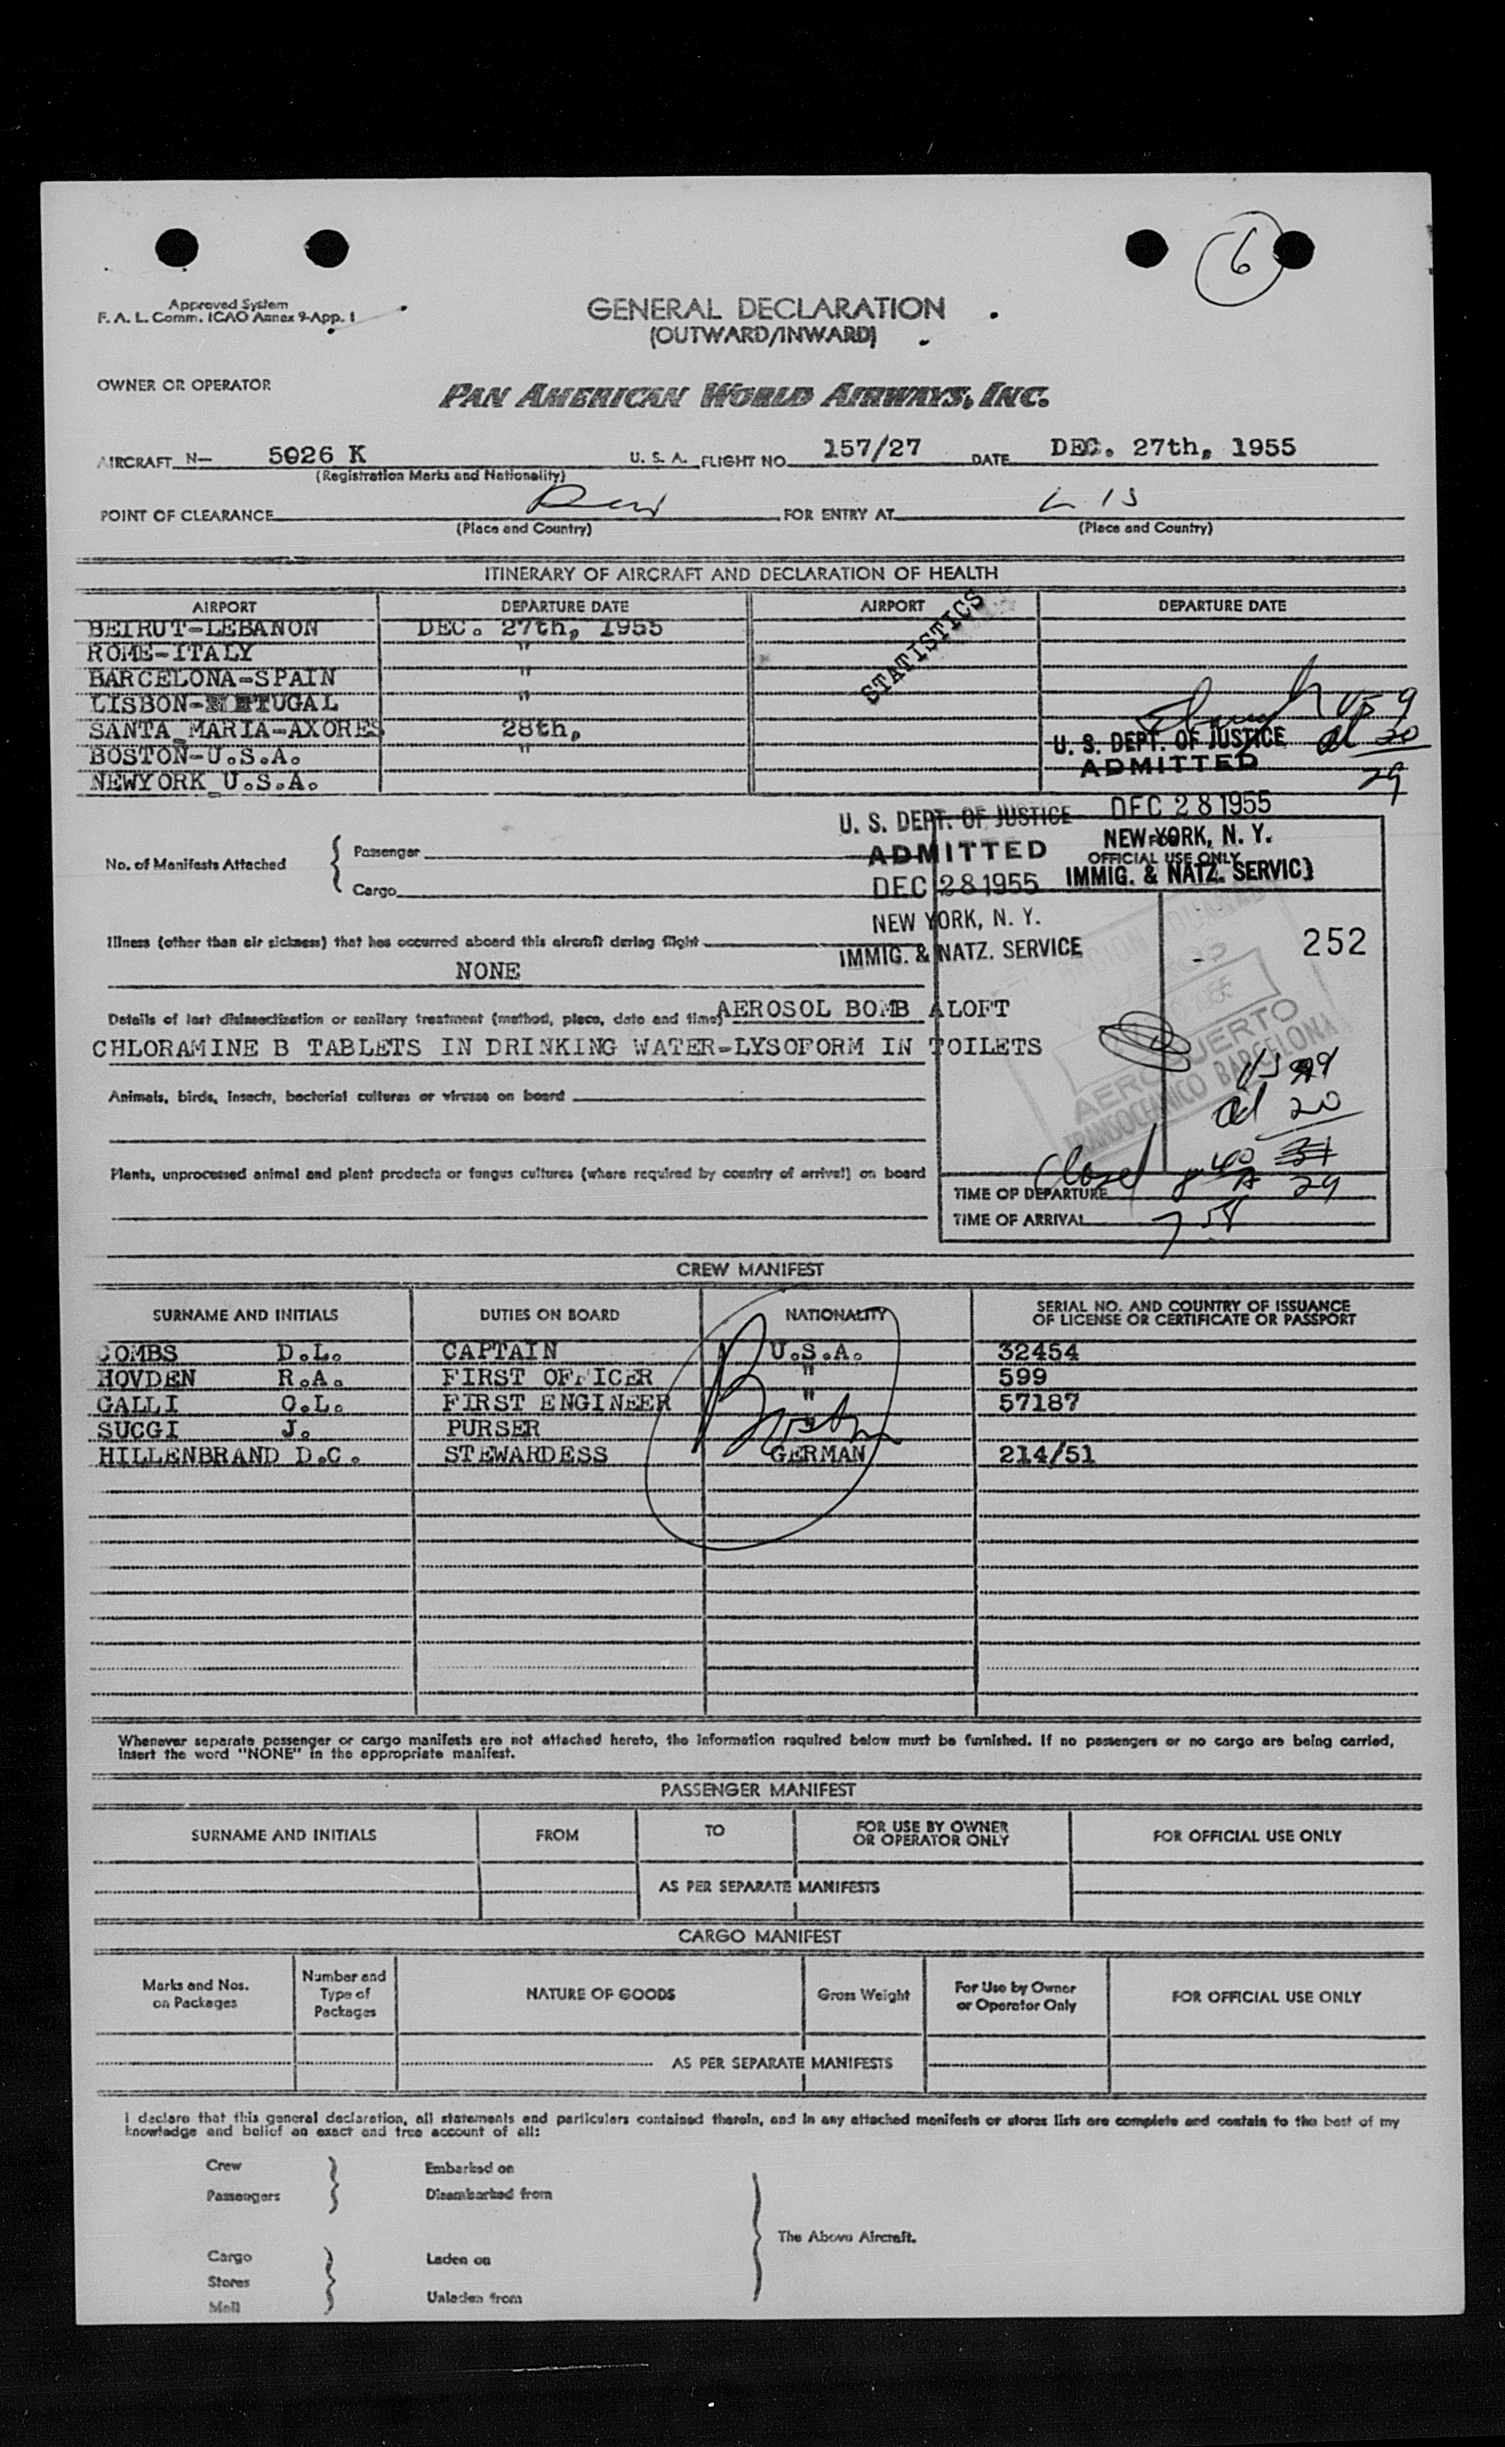 6
Approved System
F. A. L. Comm. ICAO Annex 9-App. 1
GENERAL DECLARATION
(OUTWARD/INWARD)
OWNER OR OPERATOR
PAN AMERICAN WORLD AIRWAYS, INC.
AIRCRAFT N- 5026 K U. S. A. FLIGHT NO. 157/27 DATE DEC. 27th, 1955
(Registration Marks and Nationality)
POINT OF CLEARANCE FOR ENTRY AT LIS
(Place and Country) (Place and Country)
ITINERARY OF AIRCRAFT AND DECLARATION OF HEALTH
AIRPORT DEPARTURE DATE AIRPORT DEPARTURE DATE
BEIRUT-LEBANON DEC. 27th, 1955
ROME-ITALY "
BARCELONA-SPAIN "
LISBON- TUGAL "
SANTA MARIA-AXORES 28th,
BOSTON-U.S.A. "
NEWYORK U.S.A.
STATISTICS
US 9
al 20
29
U. S. DEPT. OF JUSTICE
ADMITTED
DEC 28 1955
NEW YORK, N. Y.
IMMIG. & NATZ. SERVICE
U. S. DEPT. OF JUSTICE
ADMITTED
DEC 28 1955
NEW YORK, N. Y.
IMMIG. & NATZ. SERVICE
FOR
OFFICIAL USE ONLY
No. of Manifests Attached
Passenger
Cargo
252
Illness (other than air sickness) that has occurred aboard this aircraft during flight
NONE
Details of last disinsectization or sanitary treatment (method, place, date and time) AEROSOL BOMB ALOFT
CHLORAMINE B TABLETS IN DRINKING WATER-LYSOFORM IN TOILETS
AEROPUERTO
TRANSOCEANICO BARCELONA
Animals, birds, insects, bacterial cultures or viruses on board
US
al 20
Plants, unprocessed animal and plant products or fungus cultures (where required by country of arrival) on board
Closed
31
29
TIME OF DEPARTURE
TIME OF ARRIVAL 7 58
CREW MANIFEST
SURNAME AND INITIALS DUTIES ON BOARD NATIONALITY SERIAL NO. AND COUNTRY OF ISSUANCE
OF LICENSE OR CERTIFICATE OR PASSPORT
COMBS D.L. CAPTAIN U.S.A. 32454
HOVDEN R.A. FIRST OFFICER " 599
GALLI O.L. FIRST ENGINEER " 57187
SUCGI J. PURSER "
HILLENBRAND D.C. STEWARDESS GERMAN 214/51
Whenever separate passenger or cargo manifests are not attached hereto, the information required below must be furnished. If no passengers or no cargo are being carried,
insert the word "NONE" in the appropriate manifest.
PASSENGER MANIFEST
SURNAME AND INITIALS FROM TO FOR USE BY OWNER
OR OPERATOR ONLY FOR OFFICIAL USE ONLY
AS PER SEPARATE MANIFESTS
CARGO MANIFEST
Marks and Nos.
on Packages
Number and
Type of
Packages
NATURE OF GOODS
Gross Weight
For Use by Owner
or Operator Only
FOR OFFICIAL USE ONLY
AS PER SEPARATE MANIFESTS
I declare that this general declaration, all statements and particulars contained therein, and in any attached manifests or stores lists are complete and contain to the best of my
knowledge and belief an exact and true account of all:
Crew Embarked on
Passengers Disembarked from
The Above Aircraft.
Cargo Laden on
Stores
Mail Unladen from